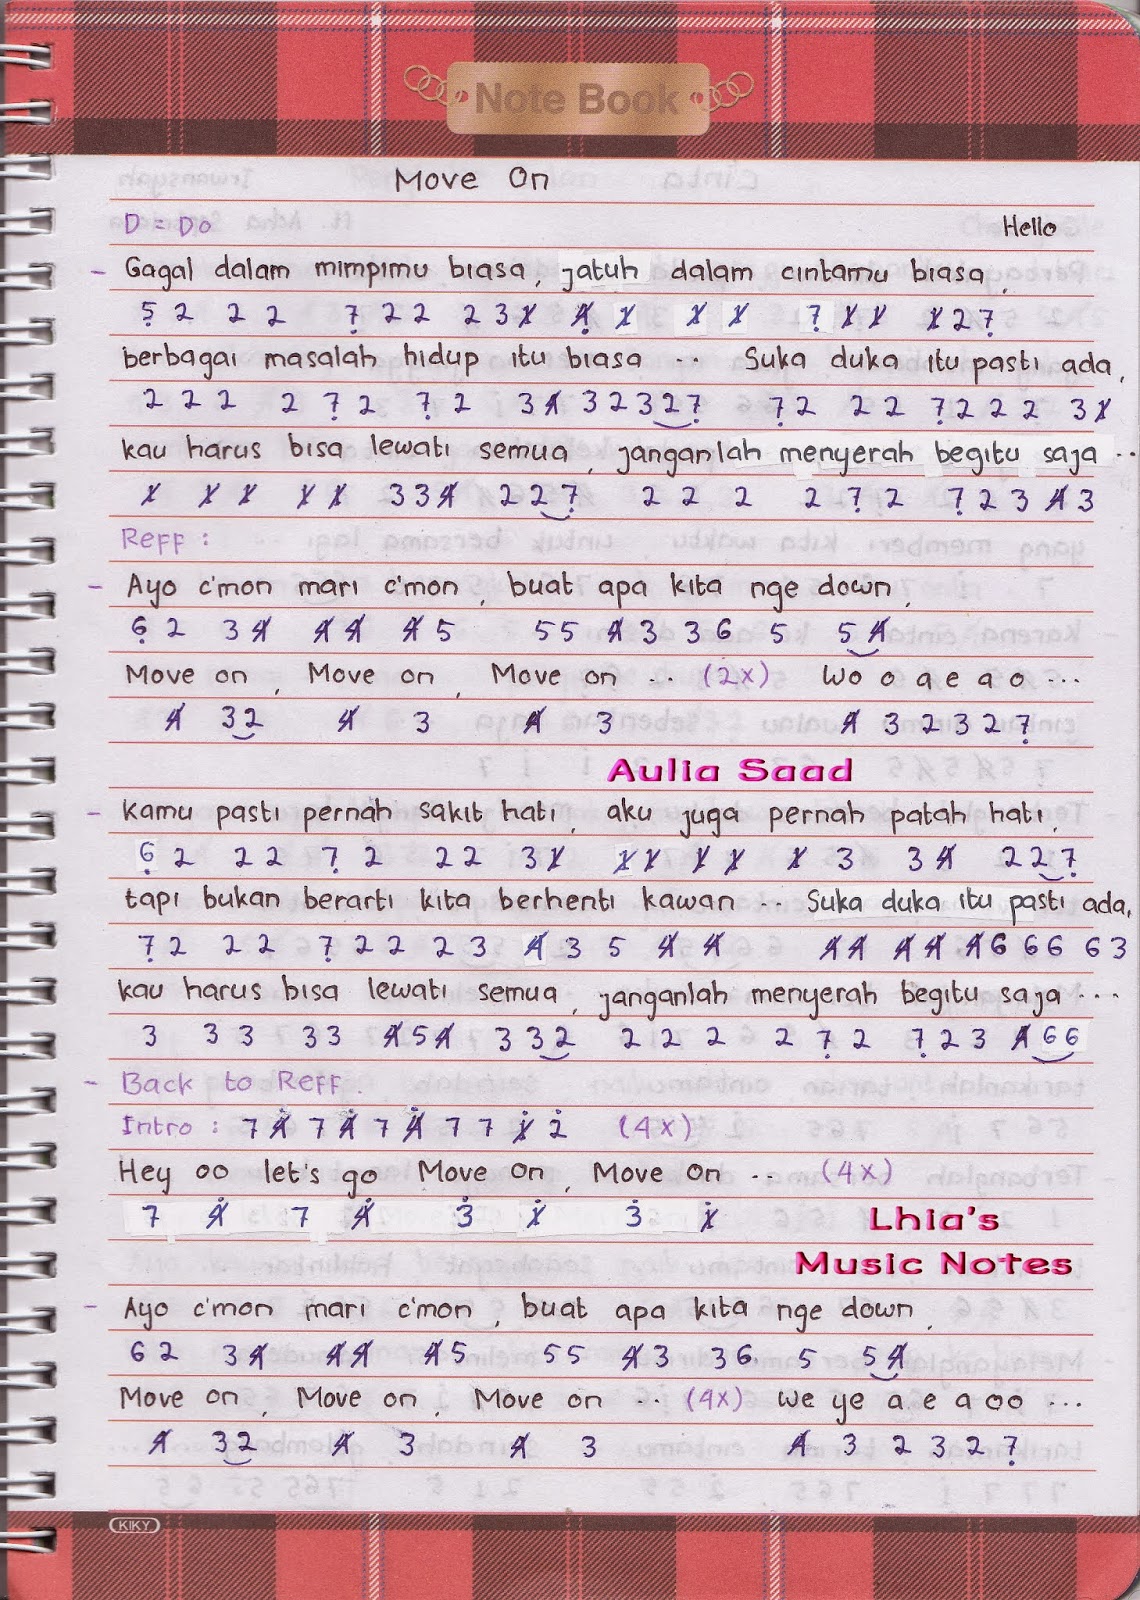 Note Book
Move On
D = Do Hello
- Gagal dalam mimpimu biasa, jatuh dalam cintamu biasa,
5̣ 2 2 2 7̣ 2 2 2 3 1̸ 4̸ 1̸ 1̸ 1̸ 7̣ 1̸ 1̸ 1̸ 2 7̣
berbagai masalah hidup itu biasa .. Suka duka itu pasti ada,
2 2 2 2 7̣ 2 7̣ 2 3 4̸ 3 2 3 2 7̣ 7̣ 2 2 2 7̣ 2 2 2 3 1̸
kau harus bisa lewati semua, janganlah menyerah begitu saja ..
1̸ 1̸ 1̸ 1̸ 1̸ 3 3 4̸ 2 2 7̣ 2 2 2 2 7̣ 2 7̣ 2 3 4̸ 3
Reff :
- Ayo c'mon mari c'mon, buat apa kita nge down,
6̣ 2 3 4̸ 4̸ 4̸ 4̸ 5 5 5 4̸ 3 3 6 5 5 4̸
Move on, Move on, Move on .. (2x) Wo o a e a o ...
4̸ 3 2 4̸ 3 4̸ 3 4̸ 3 2 3 2 7̣
Aulia Saad
- kamu pasti pernah sakit hati, aku juga pernah patah hati,
6̣ 2 2 2 7̣ 2 2 2 3 1̸ 1̸ 1̸ 1̸ 1̸ 1̸ 3 3 4̸ 2 2 7̣
tapi bukan berarti kita berhenti kawan .. Suka duka itu pasti ada,
7̣ 2 2 2 7̣ 2 2 2 3 4̸ 3 5 4̸ 4̸ 4̸ 4̸ 4̸ 4̸ 4̸ 6 6 6 6 3
kau harus bisa lewati semua, janganlah menyerah begitu saja ...
3 3 3 3 3 4̸ 5 4̸ 3 3 2 2 2 2 2 7̣ 2 7̣ 2 3 4̸ 6 6
- Back to Reff.
Intro : 7 4̸̇ 7 4̸̇ 7 4̸̇ 7 7 1̸̇ 2̇ (4x)
Hey oo let's go Move on, Move on .. (4x)
7 4̸̇ 7 4̸̇ 3̇ 1̸̇ 3̇ 1̸̇
Lhia's
Music Notes
- Ayo c'mon mari c'mon, buat apa kita nge down,
6 2 3 4̸ 4̸ 4̸ 4̸ 5 5 5 4̸ 3 3 6 5 5 4̸
Move on, Move on, Move on .. (4x) We ye a e a o o ...
4̸ 3 2 4̸ 3 4̸ 3 4̸ 3 2 3 2 7̣
KIKY